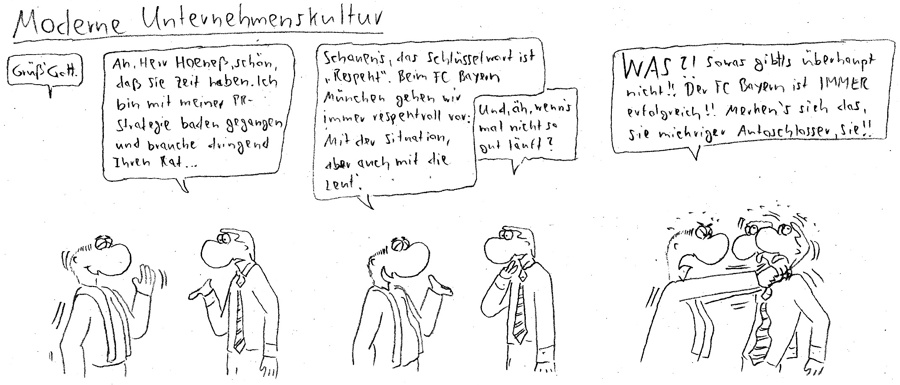 Moderne Unternehmenskultur
Grüß Gott.
Ah, Herr Hoeneß, schön,
daß sie Zeit haben. Ich
bin mit meiner PR-
Strategie baden gegangen
und brauche dringend
Ihren Rat...
Schauen's, das Schlüsselwort ist
„Respekt". Beim FC Bayern
München gehen wir
immer respektvoll vor.
Mit der Situation,
aber auch mit die
Leut'.
Und, äh, wenn's
mal nicht so
gut läuft?
WAS?! Sowas gibt's überhaupt
nicht!! Der FC Bayern ist IMMER
erfolgreich!! Merken's sich das,
sie miehriger Autoschlosser, sie!!